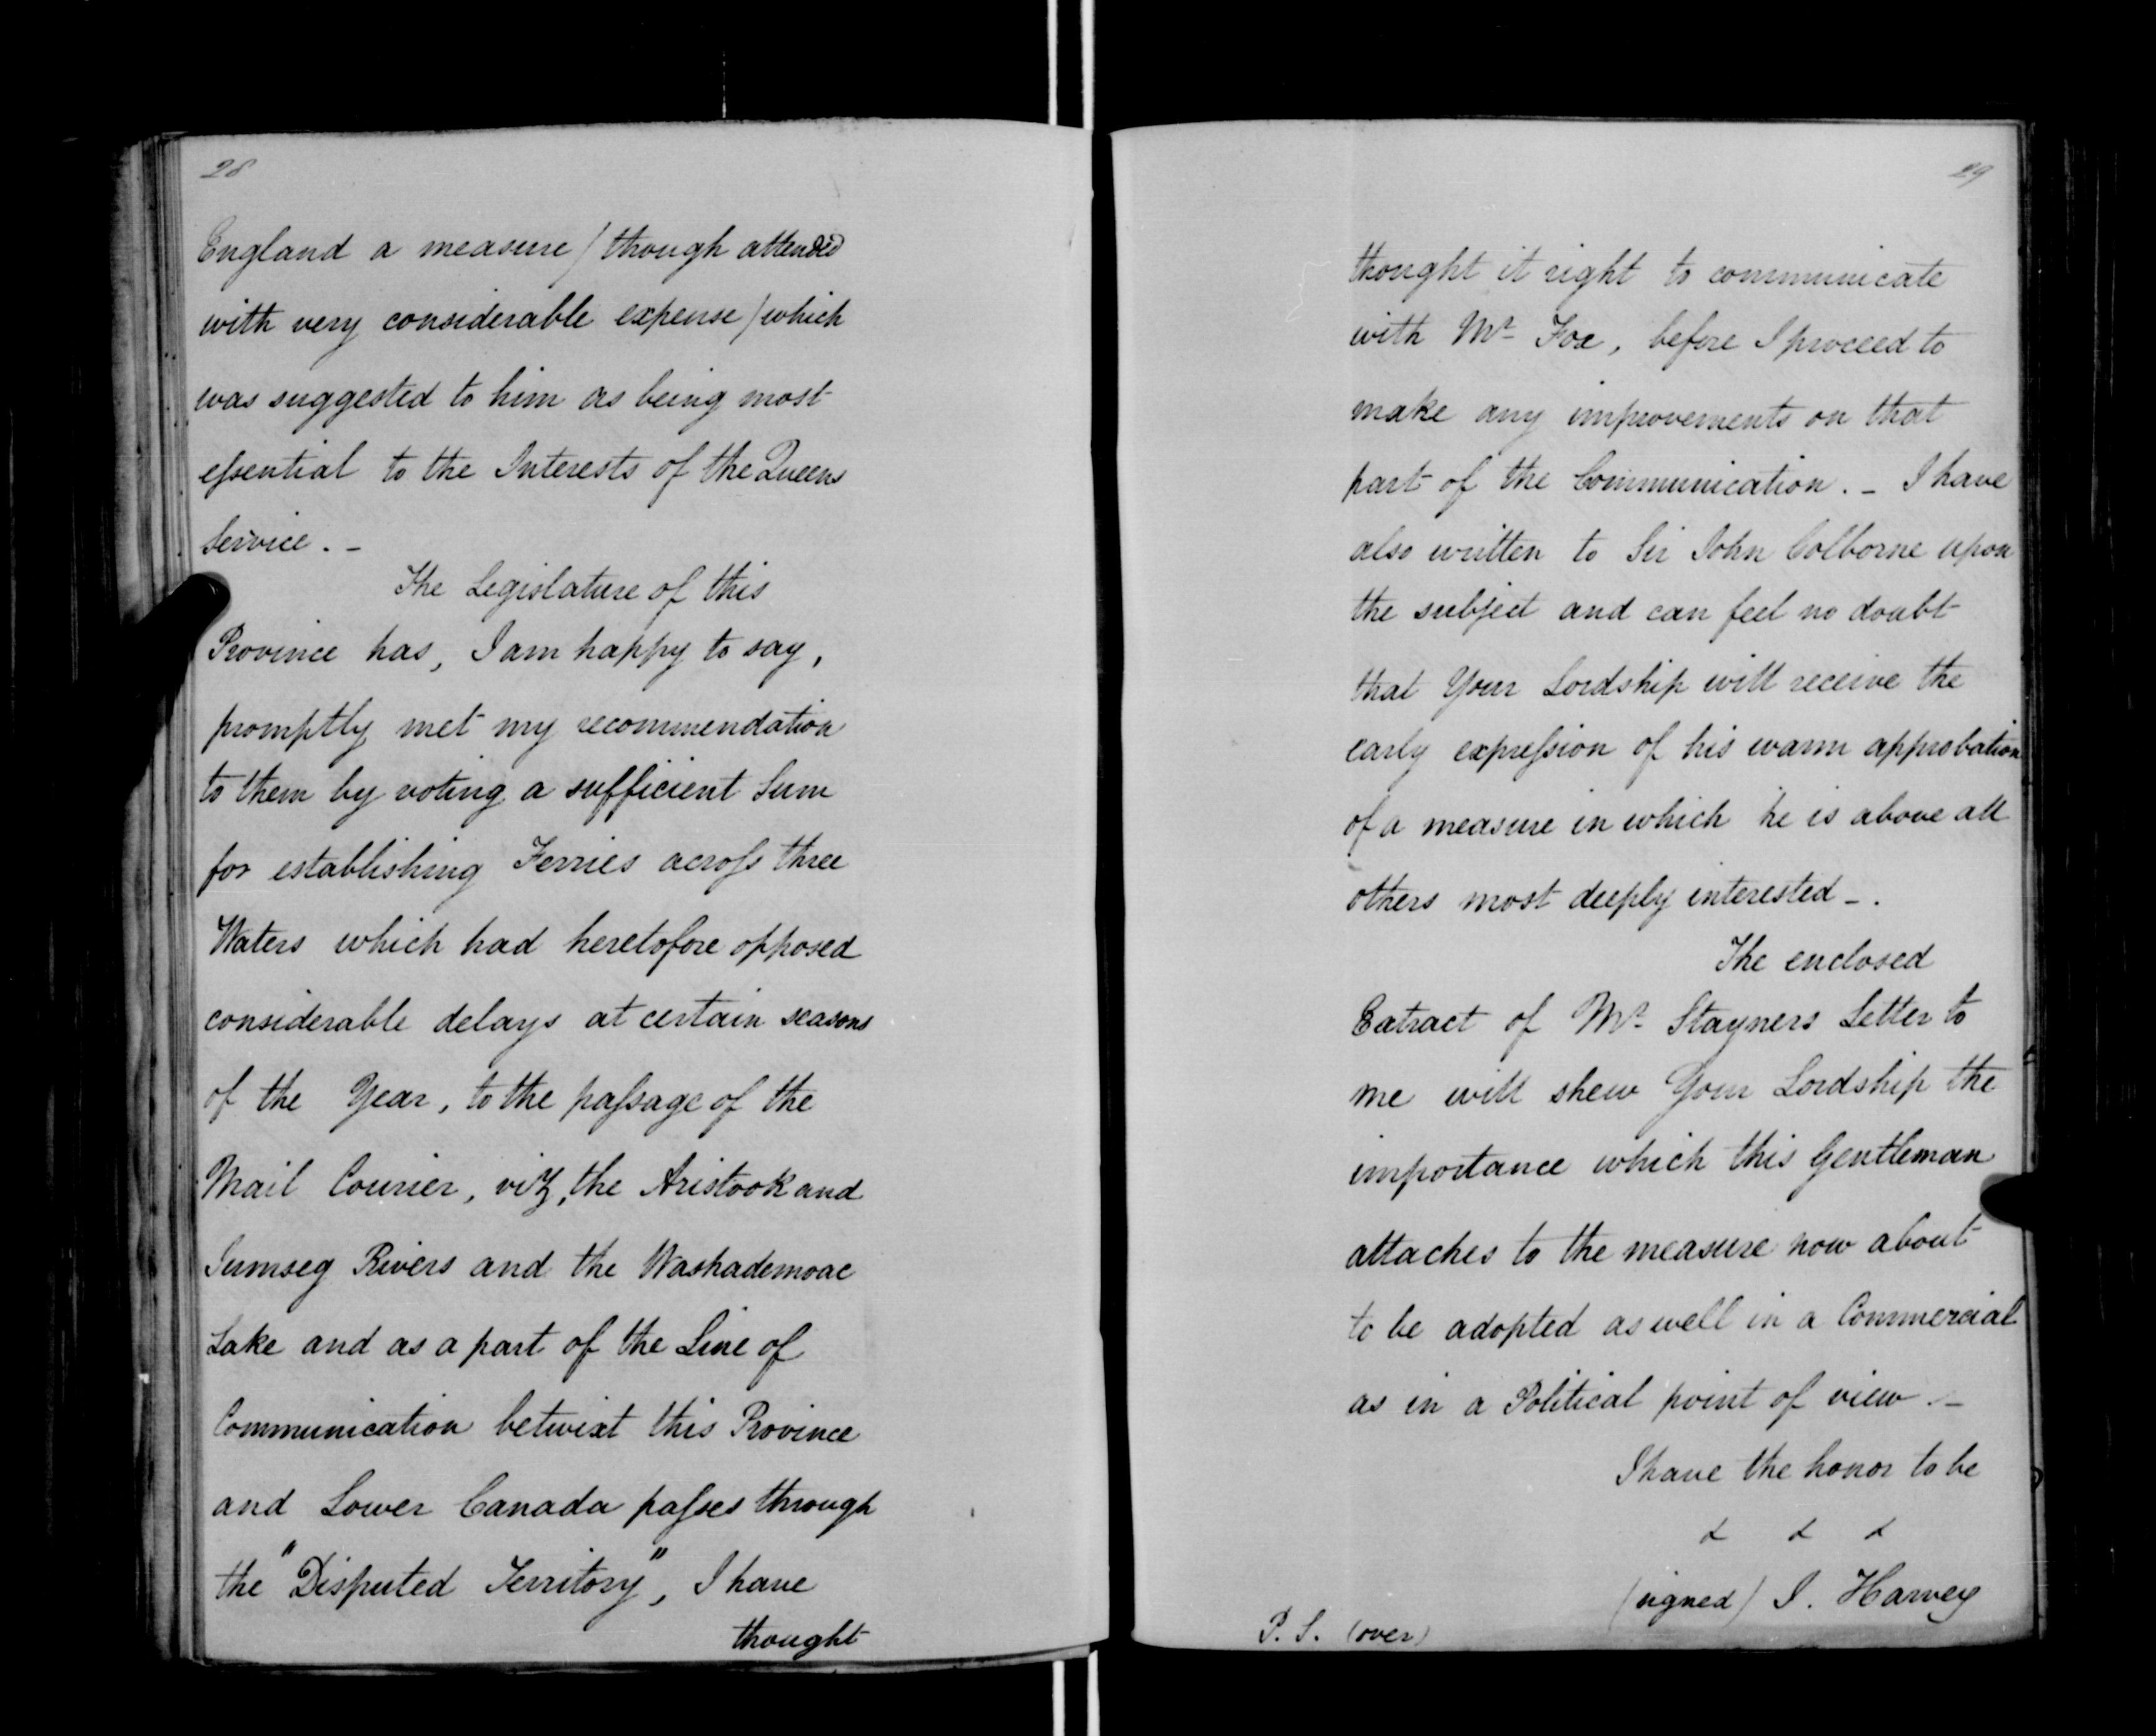 28
England a measure / though attended
with very considerable expense / which
was suggested to him as being most
essential to the Interests of the Queens
Service. _
The Legislature of this
Province has, I am happy to say,
promptly met my recommendation
to them by voting a sufficient Sum
for establishing Ferries across three
Waters which had heretofore opposed
considerable delays at certain seasons
of the Year, to the passage of the
Mail Courier, viz, the Aristook and
Jemseg Rivers and the Washademoac
Lake and as a part of the Line of
Communication betwixt this Province
and Lower Canada passes through
the "Disputed Territory", I have
thought
29
thought it right to communicate
with Mr Fox, before I proceed to
make any improvements on that
part of the Communication. _ I have
also written to Sir John Colborne upon
the subject and can feel no doubt
that Your Lordship will receive the
early expression of his warm approbation
of a measure in which he is above all
others most deeply interested _.
The enclosed
Extract of Mr Stayners Letter to
me will shew Your Lordship the
importance which this Gentleman
attaches to the measure now about
to be adopted as well in a Commercial
as in a Political point of view. _
I have the honor to be
& & &
(signed) J. Harvey
P.S. (over)